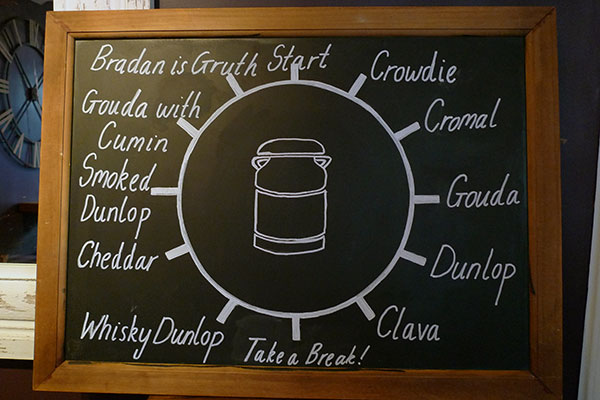 Start
Crowdie
Cromal
Gouda
Dunlop
Clava
Take a Break!
Whisky Dunlop
Cheddar
Smoked
Dunlop
Gouda with
Cumin
Bradan is Gruth